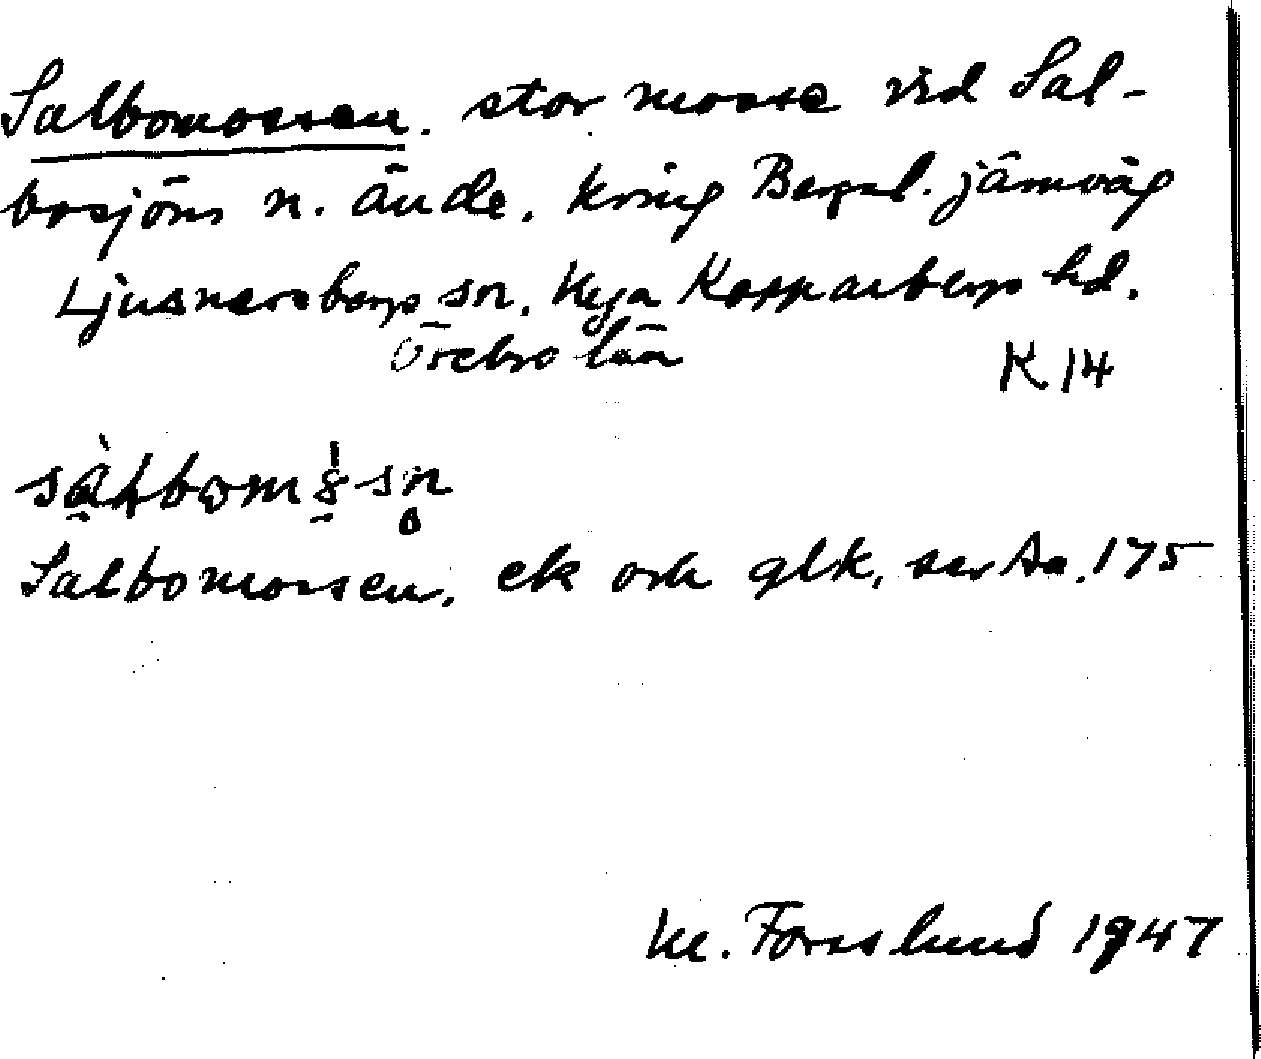 Salbomossen. stor mosse vid Sal-
bosjöns n. ände, kring Bergsl. järnväg
Ljusnarsbergs sn, Nya Kopparbergs hd.
Örebro län K 14
Salbomossen, ek och glk, ser Aa. 175
M. Forsslund 1947